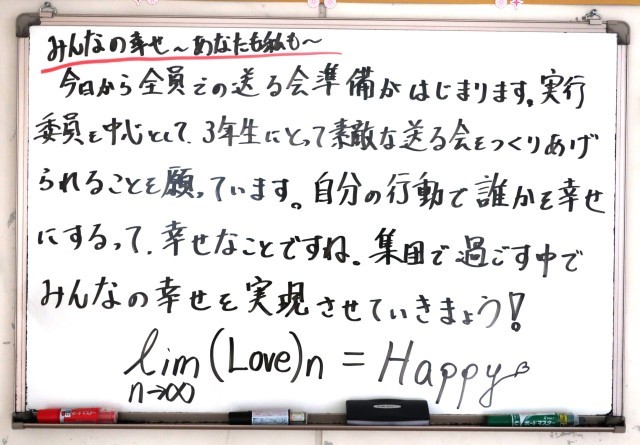 みんなの幸せ～あなたも私も～
今日から全員での送る会準備がはじまります。実行
委員を中心として、3年生にとって素敵な送る会をつくりあげ
られることを願っています。自分の行動で誰かを幸せ
にするって、幸せなことですね。集団で過ごす中で
みんなの幸せを実現させていきましょう!
lim (Love)n = Happy
n→∞
ボードマスター
ボードマスター